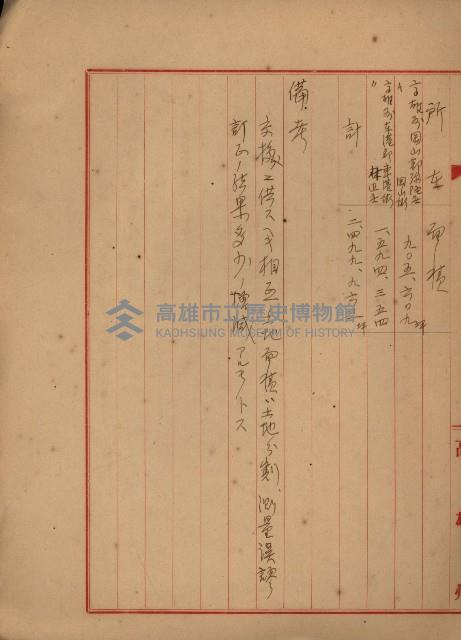 所在 面積
高雄州岡山郡弥陀庄
〃 岡山街 九〇五、六〇九坪
高雄州東港郡東港街
〃 林辺庄 一、五九四、三五四
計 二、四九九、九六一坪
備考
交換ニ供スヘキ相互土地面積ハ土地分割、測量誤謬
訂正ノ結果多少ノ増減アルモノトス
高雄州
高雄市立歷史博物館
KAOHSIUNG MUSEUM OF HISTORY